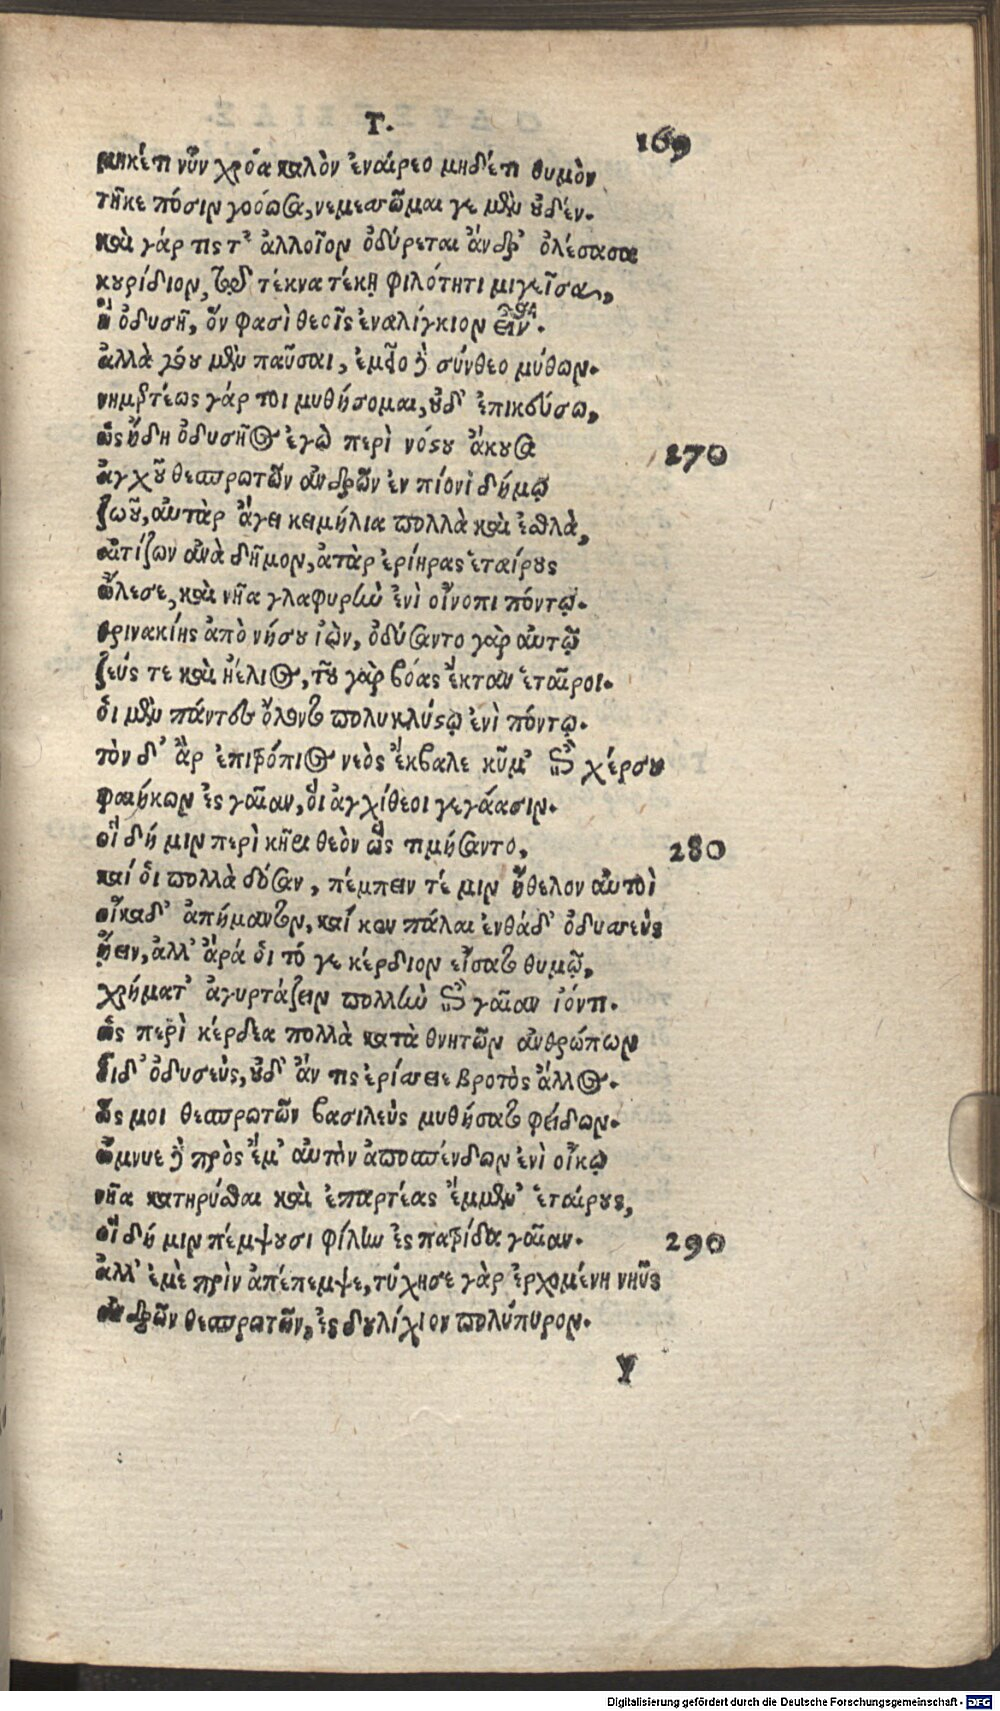 Τ.
169
μηκέτι νῦν χρόα καλὸν ἐναίρεο μηδέ τι θυμὸν
τῆκε πόσιν γοόωσα, νεμεσσῶμαι γε μὲν οὐδέν.
καὶ γάρ τις τ' ἀλλοῖον ὀδύρεται ἄνδρ' ὀλέσασα
κουρίδιον, τῷ τέκνα τέκῃ φιλότητι μιγεῖσα,
ἢ ὀδυσῆ, ὅν φασὶ θεοῖς ἐναλίγκιον εἶναι.
ἀλλὰ γόου μὲν παῦσαι, ἐμεῖο δὲ σύνθεο μύθον.
νημερτέως γάρ τοι μυθήσομαι, οὐδ' ἐπικεύσω,
ὡς ἤδη ὀδυσῆος ἐγὼ περὶ νόστου ἄκουσα
270
ἀγχοῦ θεσπρωτῶν ἀνδρῶν ἐν πίονι δήμῳ
ζωοῦ, αὐτὰρ ἄγει κειμήλια πολλὰ καὶ ἐσθλὰ,
αἰτίζων ἀνὰ δῆμον, ἀτὰρ ἐρίηρας ἑταίρους
ὤλεσε, καὶ νῆα γλαφυρὴν ἐνὶ οἴνοπι πόντῳ.
θρινακίης ἀπὸ νήσου ἰὼν, ὀδύσαντο γὰρ αὐτῷ
ζεύς τε καὶ ἠέλιος, τοῦ γὰρ βόας ἔκταν ἑταῖροι.
ὁι μὲν πάντες ὄλοντο πολυκλύστῳ ἐνὶ πόντῳ.
τὸν δ' ἂρ ἐπὶ τρόπιος νεὸς ἔκβαλε κῦμ' ἐπὶ χέρσου
φαιήκων ἐς γαῖαν, ὅι ἀγχίθεοι γεγάασιν.
οἳ δή μιν περὶ κῆρι θεὸν ὣς τιμήσαντο,
280
καί ὁι πολλὰ δόσαν, πέμπειν τέ μιν ἤθελον αὐτοὶ
οἴκαδ' ἀπήμαντον, καί κεν πάλαι ἐνθάδ' ὀδυσσεὺς
ἤην, ἀλλ' ἄρά ὁι τό γε κέρδιον εἴσατο θυμῷ,
χρήματ' ἀγυρτάζειν πολλὴν ἐπὶ γαῖαν ἰόντι.
ὣς περὶ κέρδεα πολλὰ κατὰ θνητῶν ἀνθρώπων
οἶδ' ὀδυσεὺς, οὐδ' ἄν τις ἐρίσσειε βροτὸς ἄλλος.
ὥς μοι θεσπρωτῶν βασιλεὺς μυθήσατο φείδων.
ὤμνυε δὲ πρὸς ἔμ' αὐτὸν ἀποσπένδων ἐνὶ οἴκῳ
νῆα κατηρύσθαι καὶ ἐπαρτέας ἔμμεν' ἑταίρους,
οἳ δή μιν πέμψουσι φίλην ἐς πατρίδα γαῖαν.
290
ἀλλ' ἐμὲ πρὶν ἀπέπεμψε, τύχησε γὰρ ἐρχομένη νηῦς
ἀνδρῶν θεσπρωτῶν, ἐς δουλίχιον πολύπυρον.
Y
Digitalisierung gefördert durch die Deutsche Forschungsgemeinschaft - DFG